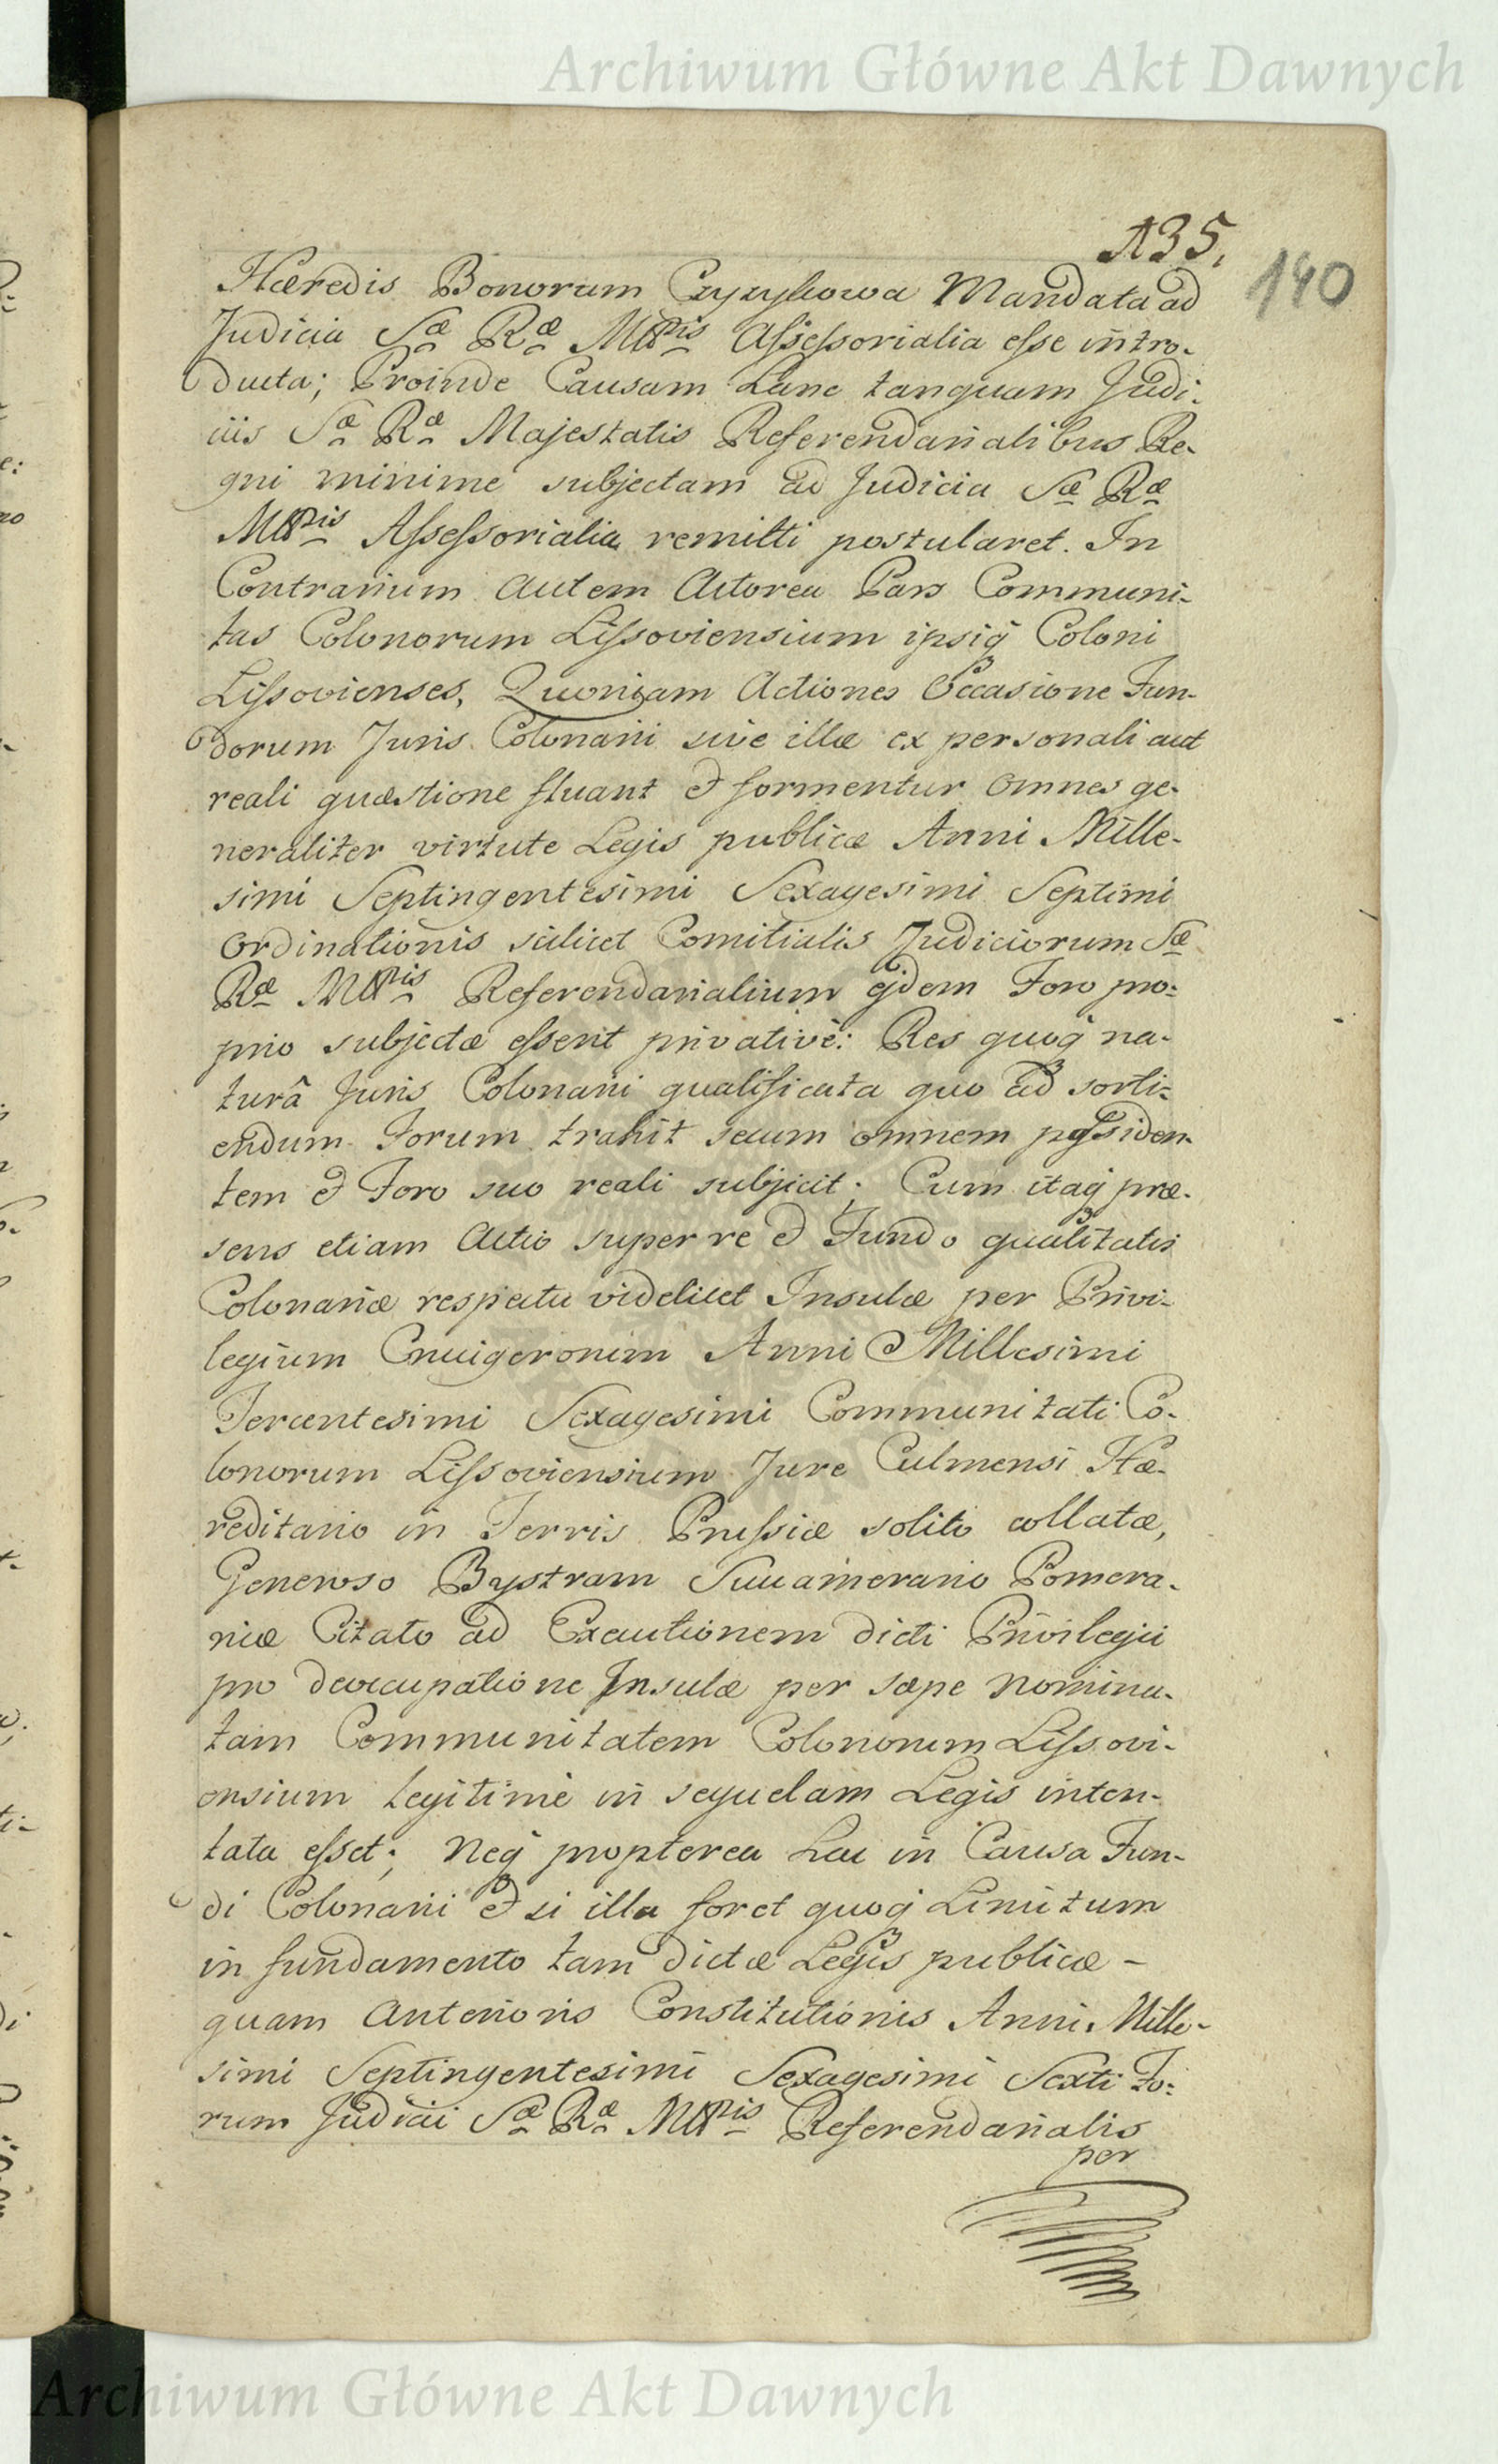 Archiwum Główne Akt Dawnych
135.
140
Hæredis Bonorum Czyzykowa Mandata ad
Judicia Sæ Ræ Mttis Assessorialia esse intro-
ducta; Proinde Causam hanc tanquam Judi-
iis Sæ Ræ Majestatis Referendarialibus Re-
gni minime subjectam ad Judicia Sæ Ræ
Mttis Assessorialia remitti postularet. In
Contrarium autem Actorea Pars Communi-
tas Colonorum Lissoviensium ipsiq Coloni
Lissovienses, Quoniam Actiones Occasione Fun-
dorum Juris Colonarii sive illæ ex personali aut
reali quæstione fluant et formentur omnes ge-
neraliter virtute Legis publicæ Anni Mille-
simi Septingentesimi Sexagesimi Septimi
Ordinationis scilicet Comitialis Judiciorum Sæ
Ræ Mttis Referendarialium ejdem Foro pro-
prio subjectæ essent privativè: Res quoq na-
turâ Juris Colonarii qualificata quo ad sorti-
endum Forum trahit secum omnem possiden-
tem et Foro suo reali subjicit; Cum itaq præ-
sens etiam Actio super re et Fundo qualitatis
Colonariæ respectu videlicet Insulæ per Privi-
legium Cruigerorum Anni Millesimi
Tercentesimi Sexagesimi Communitati Co-
lonorum Lissoviensium Jure Culmensi Hæ-
reditario in Terris Prussiæ solito collatæ,
Generoso Bystram Succamerario Pomera-
niæ Citato ad Executionem dicti Privilegii
pro deoccupatione Insulæ per sæpe nomina-
tam Communitatem Colonorum Lissovi-
ensium legitimè in sequelam Legis inten-
tata esset; Neq propterea hac in Causa Fun-
di Colonarii et si illa foret quoq Limitum
in fundamento tam dictæ Legis publicæ -
quam anterioris Constitutionis Anni Mille-
simi Septingentesimi Sexagesimi Sexti Fo-
rum Judicii Sæ Ræ Mttis Referendarialis
per
Archiwum Główne Akt Dawnych